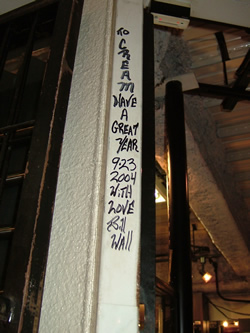 TO
CREAM
HAVE
A
GREAT
YEAR
9-23
2004
WITH
LOVE
Bill
WAll